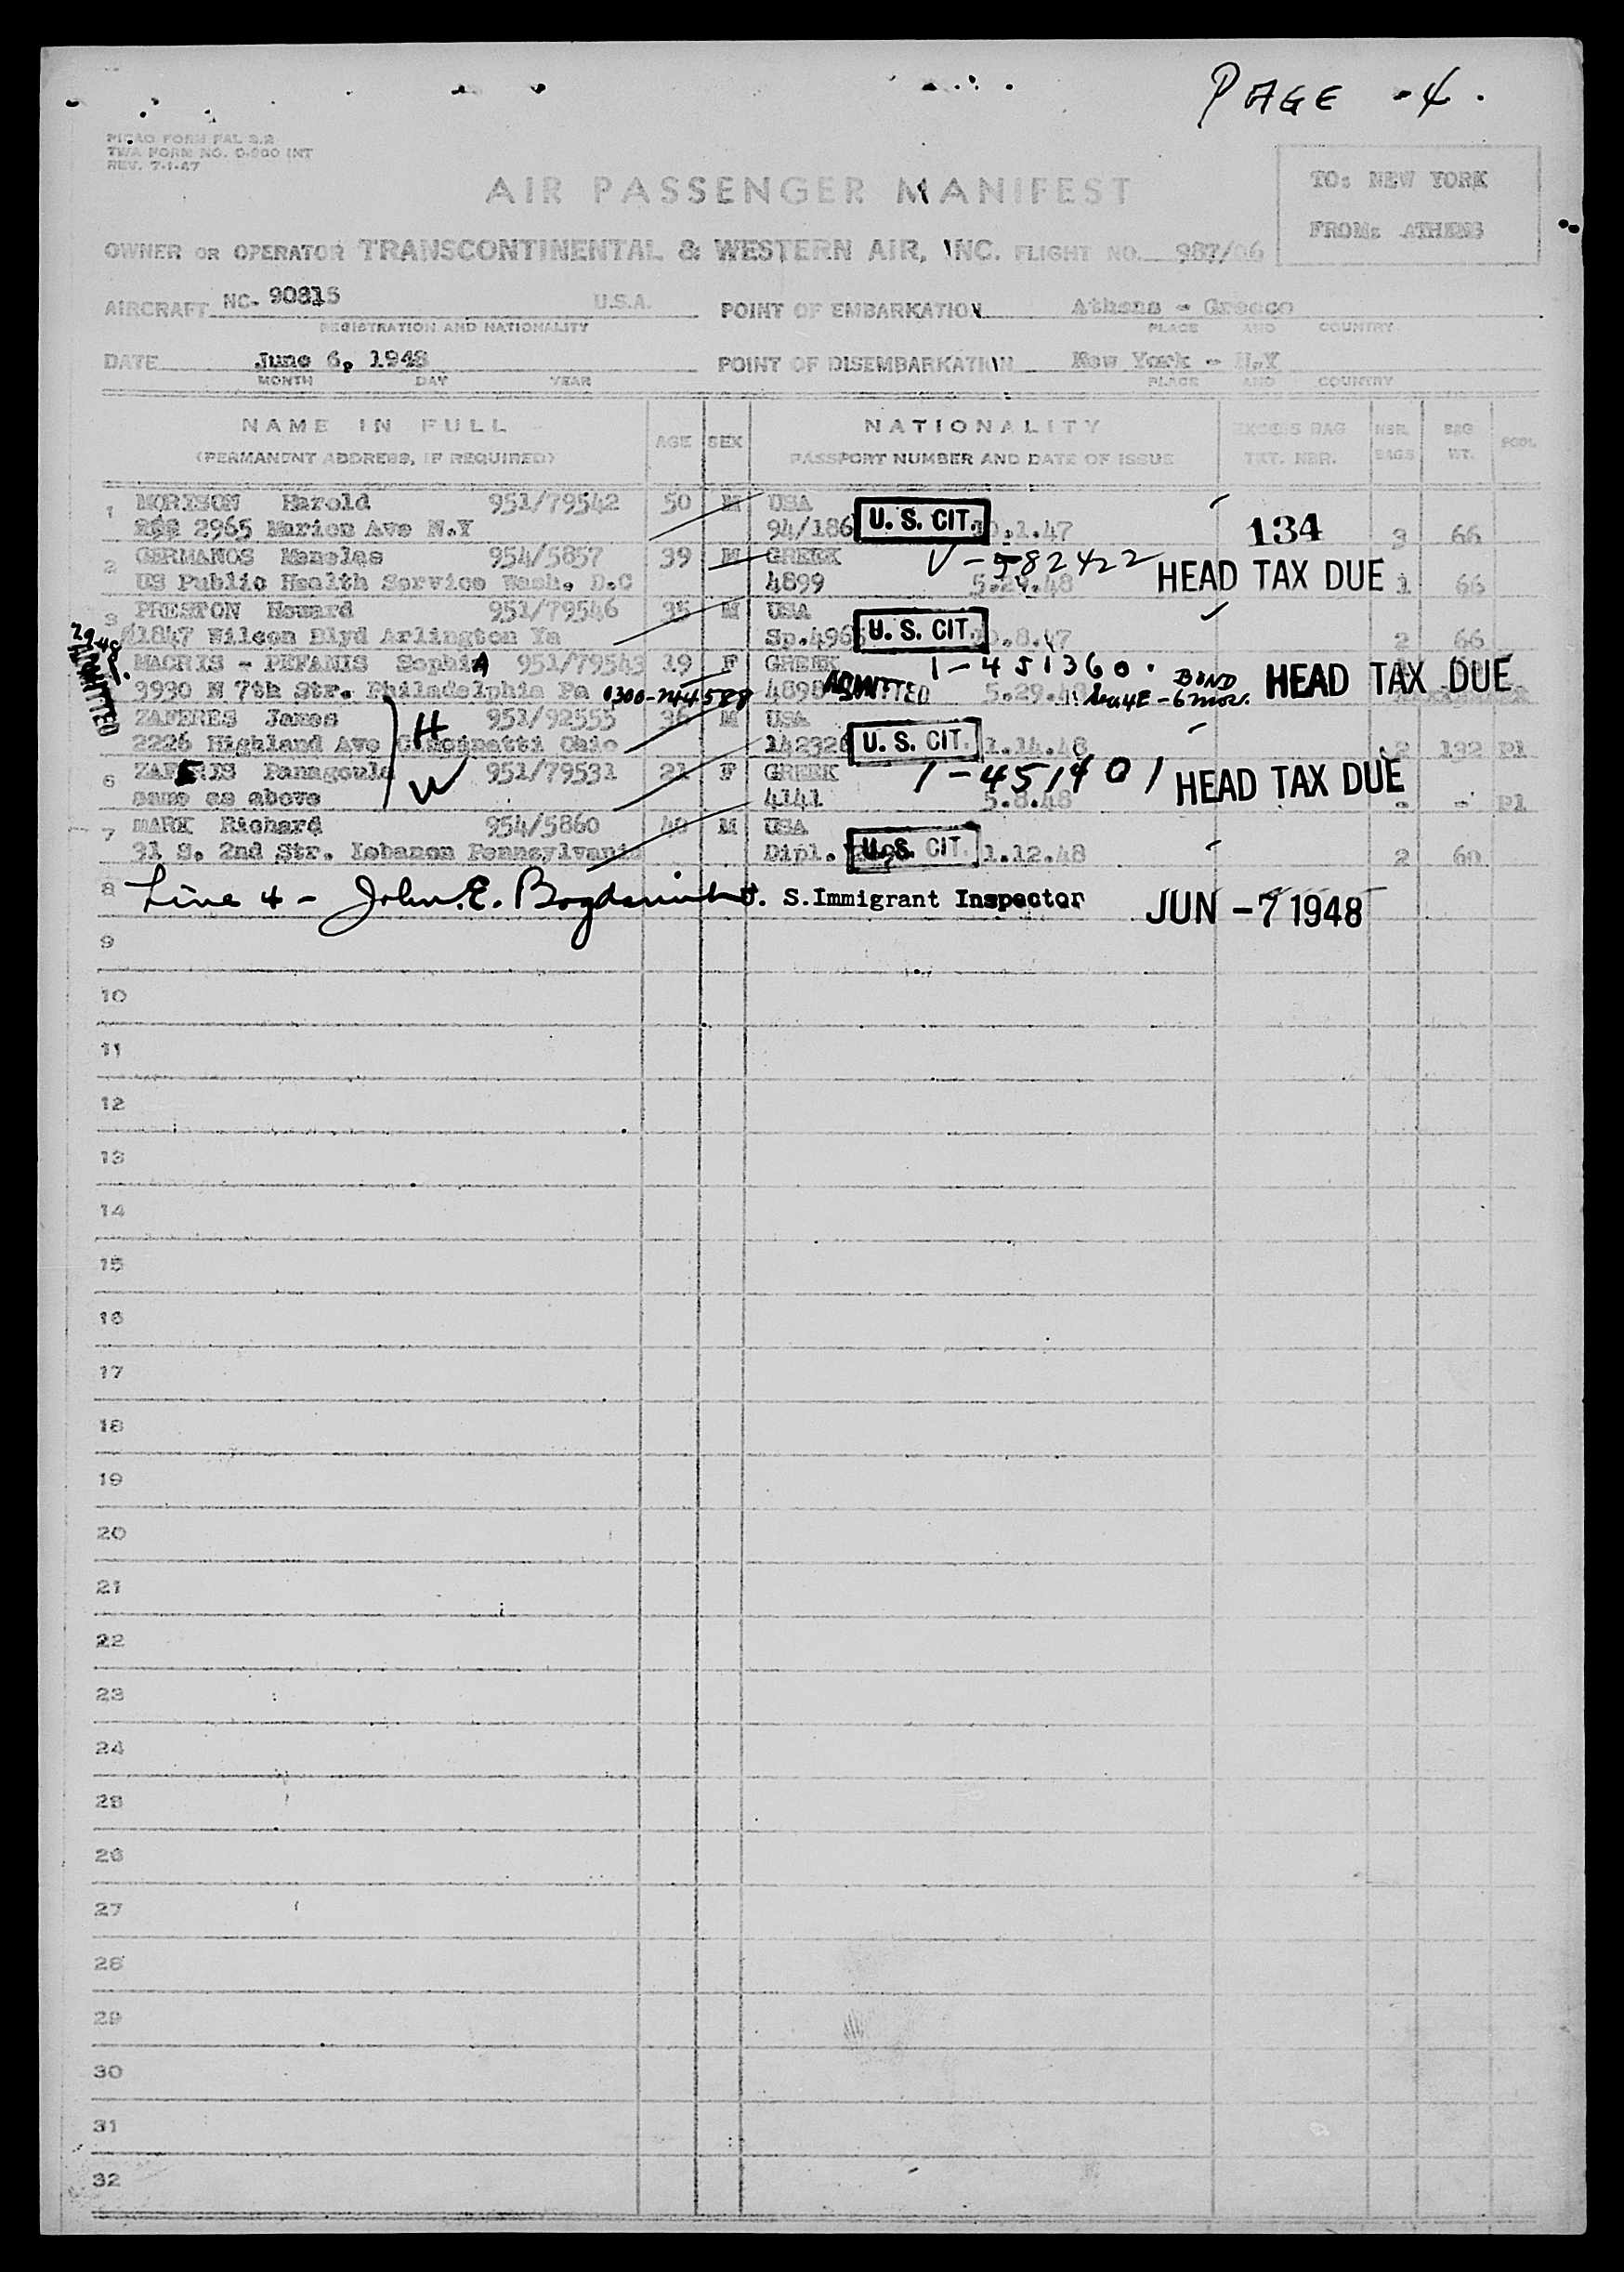 PAGE -4.
PICAO FORM FAL 2.2
TWA FORM NO. 0-900 INT
REV. 7-1-47
AIR PASSENGER MANIFEST
TO: NEW YORK
FROM: ATHENS
OWNER OR OPERATOR TRANSCONTINENTAL & WESTERN AIR, INC. FLIGHT NO. 987/06
AIRCRAFT NC- 90815 U.S.A. POINT OF EMBARKATION Athens - Greece
REGISTRATION AND NATIONALITY PLACE AND COUNTRY
DATE June 6, 1948 POINT OF DISEMBARKATION New York - N.Y
MONTH DAY YEAR PLACE AND COUNTRY
NAME IN FULL AGE SEX NATIONALITY EXCESS BAG NBR. BAG POOL
(PERMANENT ADDRESS, IF REQUIRED) PASSPORT NUMBER AND DATE OF ISSUE TKT. NBR. BAGS WT.
1 MORISON Harold 951/79542 50 M USA
2965 Marion Ave N.Y 94/186 U. S. CIT. .1.47 134 3 66
2 GERMANOS Menelas 954/5857 39 M GREEK V-582422
US Public Health Service Wash. D.C 4899 5.29.48 HEAD TAX DUE 1 66
3 PRESTON Howard 951/79546 35 M USA
1847 Wilson Blvd Arlington Va Sp.496 U. S. CIT. .8.47 2 66
ADMITTED MACRIS - PEFANIS SophiA 951/79543 19 F GREEK 1-451360. BOND HEAD TAX DUE
3930 N 7th Str. Philadelphia Pa 0300-744588 4898 ADMITTED 5.29.48 - 6 mos.
ZAFERES James H 951/92555 36 M USA
2226 Highland Ave Cincinatti Ohio 14232 U. S. CIT. 1.14.48 2 132 Pl
6 ZAFERIS Panagoula W 951/79531 21 F GREEK 1-451401 HEAD TAX DUE
same as above 4141 5.8.48 - - Pl
7 MARK Richard 954/5860 40 M USA
31 S. 2nd Str. Lebanon Pennsylvania Dipl. U. S. CIT. 1.12.48 2 60
8 Line 4 - John E. U. S. Immigrant Inspector JUN -7 1948
9
10
11
12
13
14
15
16
17
18
19
20
21
22
23
24
25
26
27
28
29
30
31
32